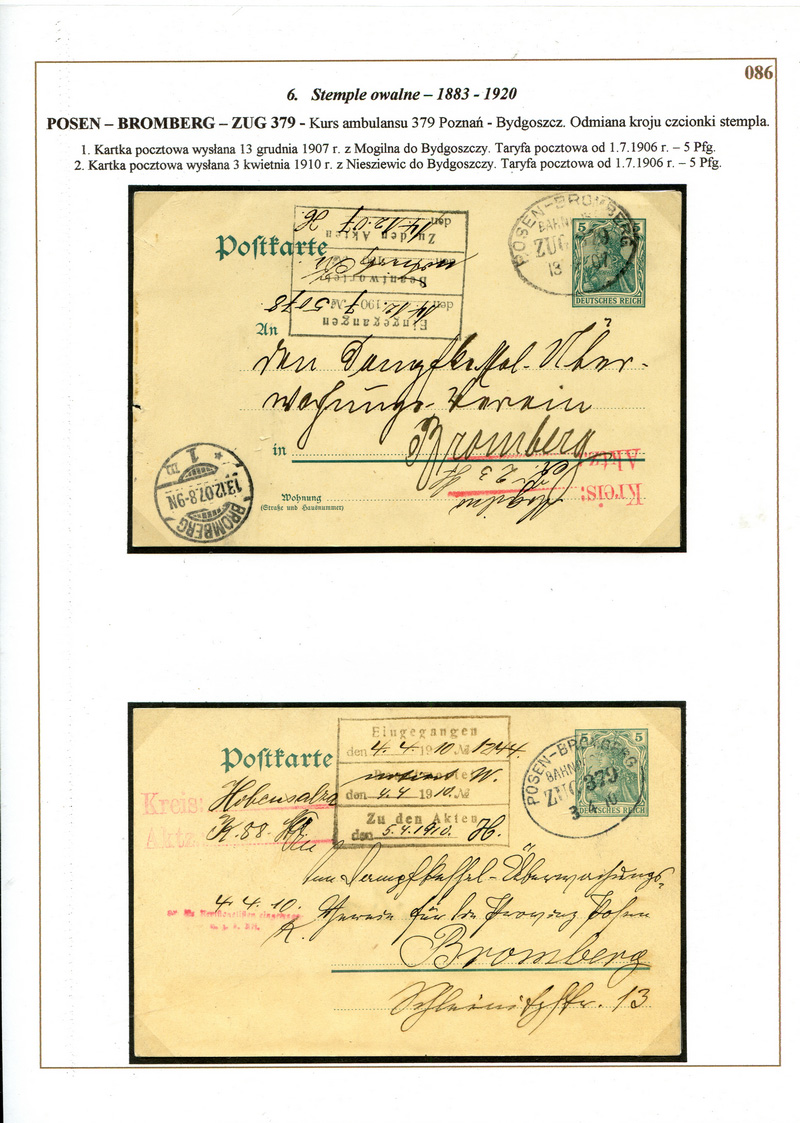 086
6. Stemple owalne – 1883 - 1920
POSEN – BROMBERG – ZUG 379 - Kurs ambulansu 379 Poznań - Bydgoszcz. Odmiana kroju czcionki stempla.
1. Kartka pocztowa wysłana 13 grudnia 1907 r. z Mogilna do Bydgoszczy. Taryfa pocztowa od 1.7.1906 r. – 5 Pfg.
2. Kartka pocztowa wysłana 3 kwietnia 1910 r. z Niesziewic do Bydgoszczy. Taryfa pocztowa od 1.7.1906 r. – 5 Pfg.
Postkarte
Eingegangen
den 14.12. 190 7 № 5078
Beantwortet
Zu den Akten
den 14.12.07 H.
POSEN-BROMBERG
BAHN
ZUG
13
5
DEUTSCHES REICH
An
den Dampfkessel-Über-
wachungs-Verein
in Bromberg
Kreis: Mogilno
Aktz.: K. 23
Wohnung
(Straße und Hausnummer)
BROMBERG
13.12.07.8-9N.
* 1 B
Postkarte
Eingegangen
den 4.4. 1910 № 1244.
W.
den 4.4 1910. №
Zu den Akten
den 5.4.1910. H.
POSEN-BROMBERG
BAHN
ZUG 379
3 4 10
5 5
DEUTSCHES REICH
Kreis: Hohensalza
Aktz. K. 88.
An
den Dampfkessel-Überwachungs-
4.4.10. Verein für die Provinz Posen
R. Bromberg
Schleinitzstr. 13